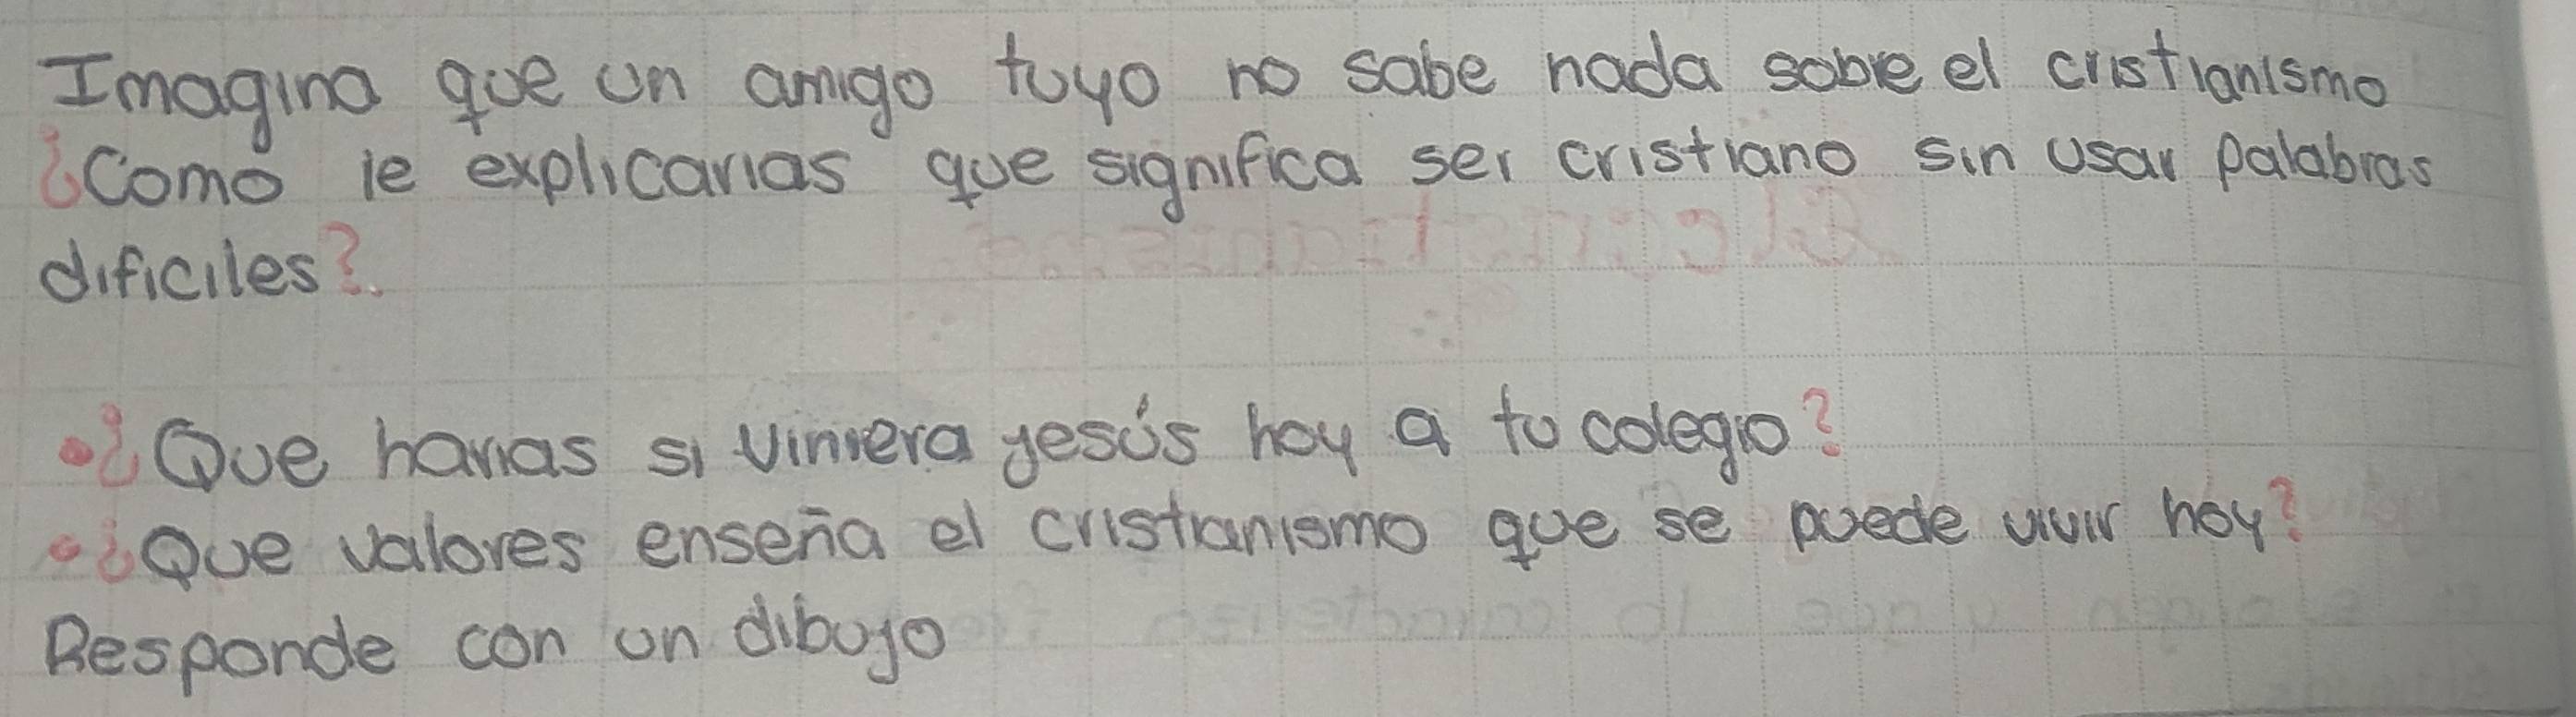 Imagina que un amigo tuyo no sabe nada sobre el cristianismo
¿Como le explicarias que significa ser cristiano sin usar palabras
dificiles?.
•¿Que harias si viniera jesús hoy a tu colegio?
•¿Que valores enseña el cristianismo que se puede vivir hoy?
Responde con un dibujo